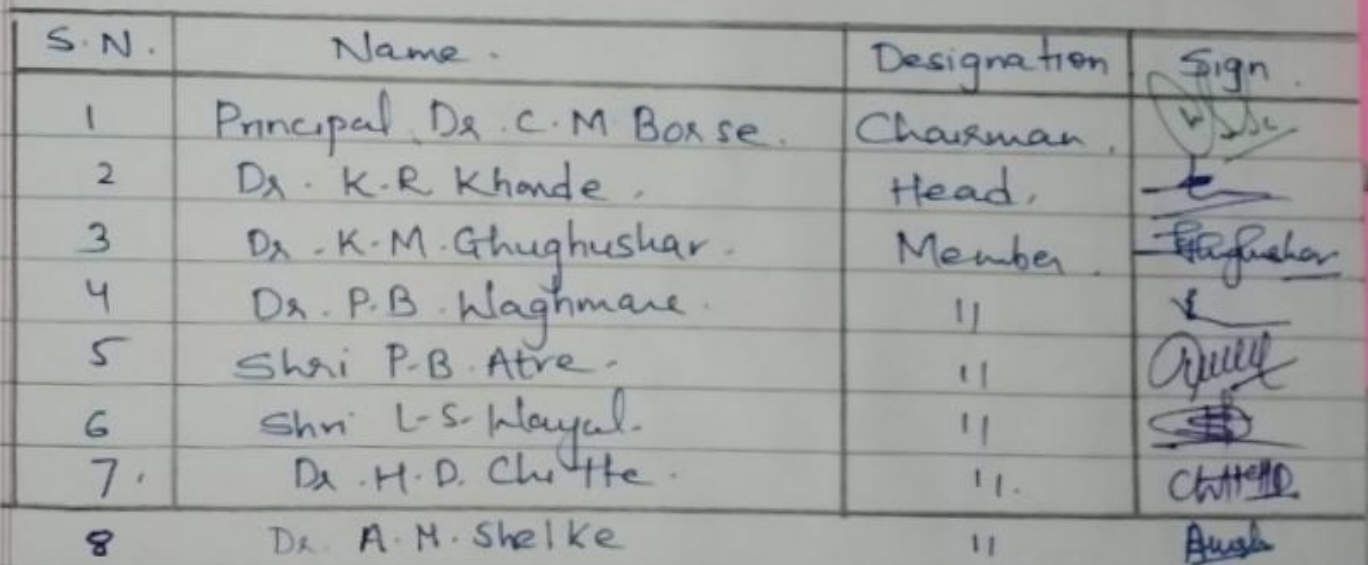 S.N. Name. Designation Sign.
1 Principal Dr. C.M Borse. Chairman.
2 Dr. K.R Khonde. Head.
3 Dr. K.M. Ghughuskar. Member.
4 Dr. P.B. Waghmare. 11
5 Shri P.B. Atre. 11
6 Shri L.S. Wayal. 11
7. Dr. H.D. Chitte. 11.
8 Dr. A.M. Shelke 11